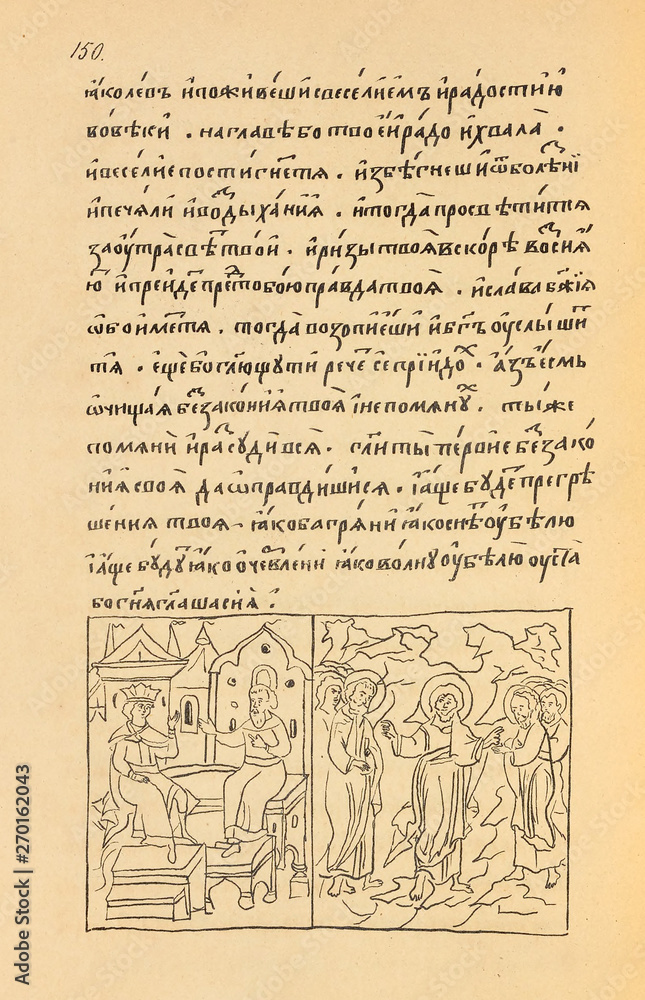 150.
ꙗколевъ ипоживеши свеселиемъ ирадостию
вовѣки . наглавѣ бо твоеи радо ихвала .
ивеселие постигнетя . избѣгнеши ѿболѣни
ипечяли ивоздыхания . итогда просвѣтится
заоутра свѣтвои . иризы твоя вскорѣ восия
ю ипреидепретобою правда твоя . ислава бжия
ѡбоиметя . тогда возопиеши ибгъ оуслыши
тя . еще бо глющу ти рече се приидох . азъ есмь
ѡчищая беззакония твоя инепомяну . ты же
помяни ира судився . глиты первие беззако
ния своя да ѡправдишися . iаще буде прегрѣ
шения твоя ꙗко багряни ꙗко снѣ оубѣлю
iаще буду ꙗко очевлени ꙗко волну оубѣлю оуста
бо гня глаша сия .
Adobe Stock | #270162043
Adobe Stock